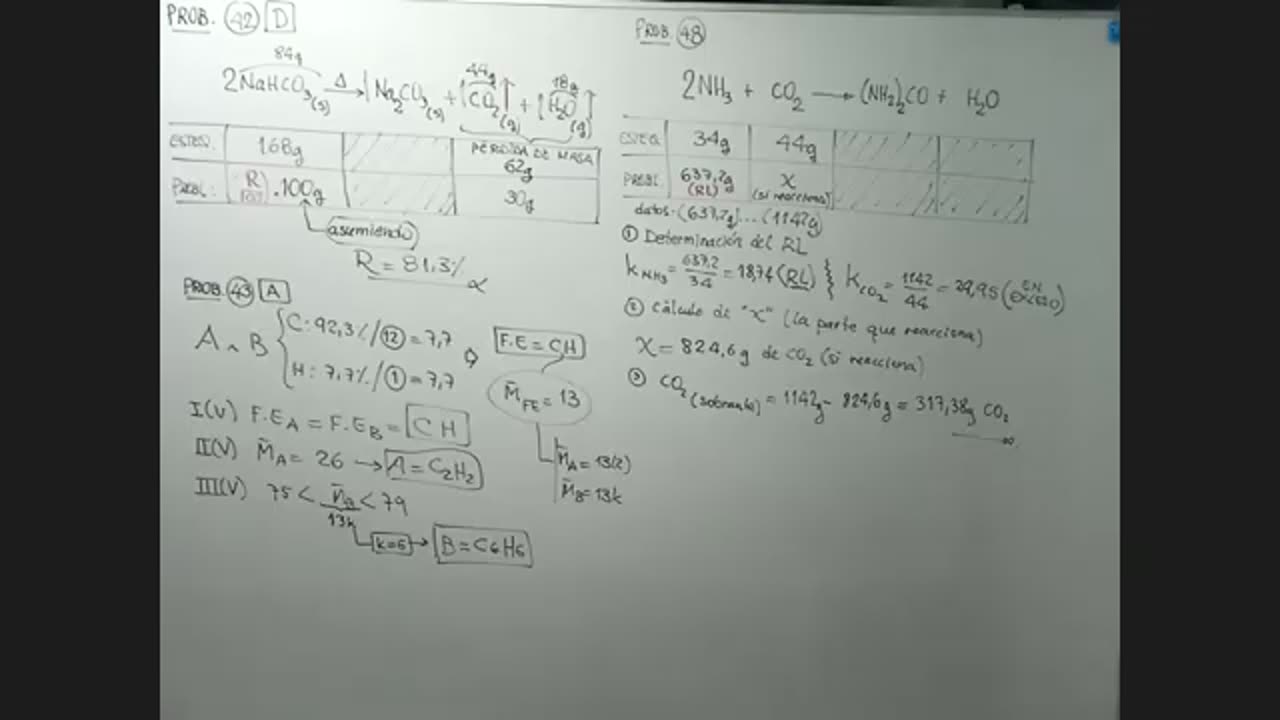 PROB. 42 D
84g 44g 18g
2NaHCO3(s) Δ→ 1Na2CO3(s) + 1CO2↑(g) + 1H2O↑(g)
ESTEQ. 168g PÉRDIDA DE MASA 62g
PROBL: R/100 .100g 30g
asumiendo
R = 81,3%
PROB. 43 A
A ∧ B { C: 92,3% / 12 = 7,7
H: 7,7% / 1 = 7,7
F.E = CH
M̄FE = 13
M̄A = 13(2)
M̄B = 13k
I(V) F.EA = F.EB = CH
II(V) M̄A = 26 → A = C2H2
III(V) 75 < M̄B < 79
13k
k=6 → B = C6H6
PROB. 48
2NH3 + CO2 → (NH2)2CO + H2O
ESTEQ 34g 44g
PROBL 637,2g (RL) x (si reacciona)
datos: (637,2g)...(1142g)
① Determinación del RL
kNH3 = 637,2/34 = 18,74 (RL) } kCO2 = 1142/44 = 29,95 (EN EXCESO)
② Cálculo de "x" (la parte que reacciona)
x = 824,6g de CO2 (si reacciona)
③ CO2 (sobrante) = 1142g - 824,6g = 317,38g CO2